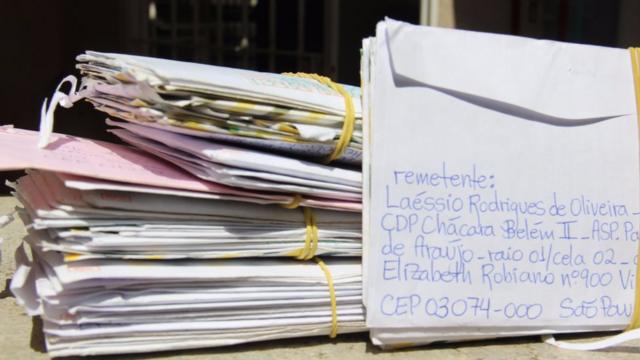 remetente:
Laéssio Rodrigues de Oliveira
CDP Chácara Belém II - ASP. Pa
de Araújo - raio 01/cela 02 -
Elizabeth Robiano nº 900 Vi
CEP 03074-000 São Pau